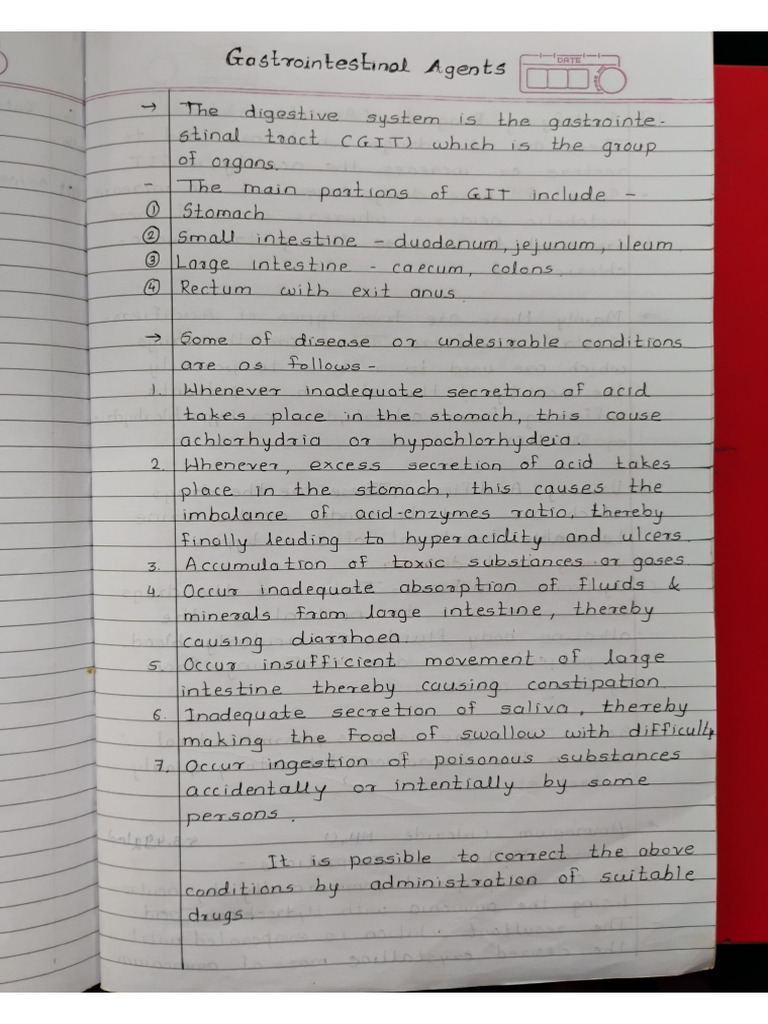 Gastrointestinal Agents
DATE
→ The digestive system is the gastrointe-
stinal tract (GIT) which is the group
of organs.
- The main portions of GIT include -
① Stomach
② Small intestine - duodenum, jejunum, ileum
③ Large intestine - caecum, colons
④ Rectum with exit anus
→ Some of disease or undesirable conditions
are as follows -
1. Whenever inadequate secretion of acid
takes place in the stomach, this cause
achlorhydria or hypochlorhydeia.
2. Whenever, excess secretion of acid takes
place in the stomach, this causes the
imbalance of acid-enzymes ratio, thereby
finally leading to hyperacidity and ulcers.
3. Accumulation of toxic substances or gases.
4. Occur inadequate absorption of fluids &
minerals from large intestine, thereby
causing diarrhoea.
5. Occur insufficient movement of large
intestine thereby causing constipation
6. Inadequate secretion of saliva, thereby
making the food of swallow with difficulty
7. Occur ingestion of poisonous substances
accidentally or intentially by some
persons.
It is possible to correct the above
conditions by administration of suitable
drugs.